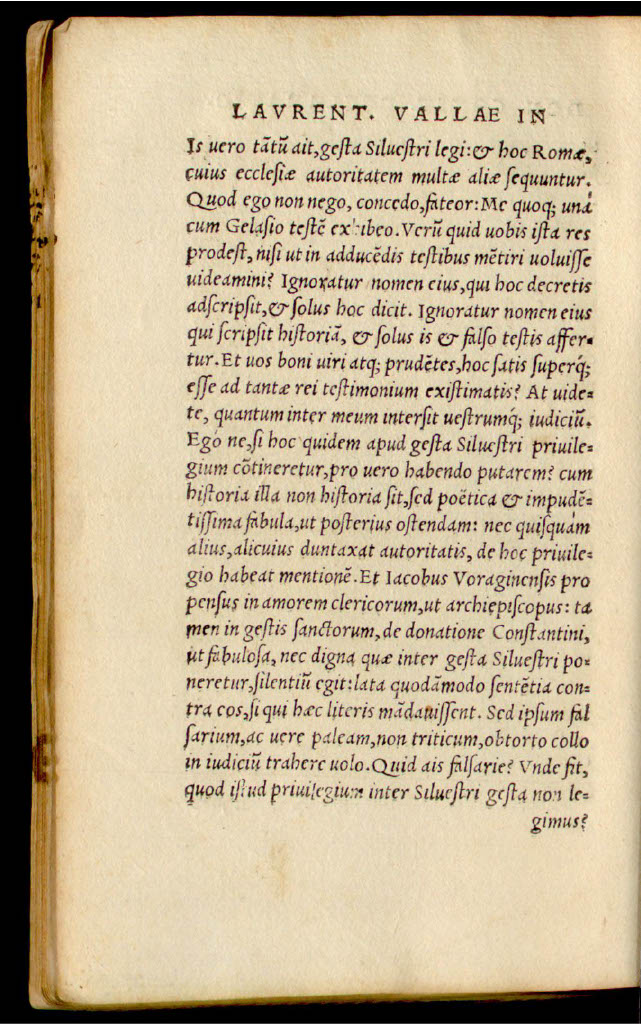 LAVRENT. VALLAE IN
Is uero tãtũ ait, gesta Siluestri legi: & hoc Romæ,
cuius ecclesiæ autoritatem multæ aliæ sequuntur.
Quod ego non nego, concedo, fateor: Me quoq; unà
cum Gelasio testẽ exhibeo. Verũ quid uobis ista res
prodest, nisi ut in adducẽdis testibus mẽtiri uoluisse
uideamini? Ignoratur nomen eius, qui hoc decretis
adscripsit, & solus hoc dicit. Ignoratur nomen eius
qui scripsit historiã, & solus is & falso testis affer-
tur. Et uos boni uiri atq; prudẽtes, hoc satis superq́;
esse ad tantæ rei testimonium existimatis? At uide-
te, quantum inter meum intersit uestrumq́; iudiciũ.
Ego ne, si hoc quidem apud gesta Siluestri priuile-
gium cõtineretur, pro uero habendo putarem? cum
historia illa non historia sit, sed poëtica & impudẽ-
tissima fabula, ut posterius ostendam: nec quisquàm
alius, alicuius duntaxat autoritatis, de hoc priuile-
gio habeat mentionẽ. Et Iacobus Voraginensis pro
pensus in amorem clericorum, ut archiepiscopus: ta
men in gestis sanctorum, de donatione Constantini,
ut fabulosa, nec digna quæ inter gesta Siluestri po-
neretur, silentiũ egit: lata quodãmodo sentẽtia con-
tra eos, si qui hæc literis mãdauissent. Sed ipsum fal
sarium, ac uere paleam, non triticum, obtorto collo
in iudiciũ trahere uolo. Quid ais falsarie? Vnde fit,
quod istud priuilegium inter Siluestri gesta non le-
gimus?